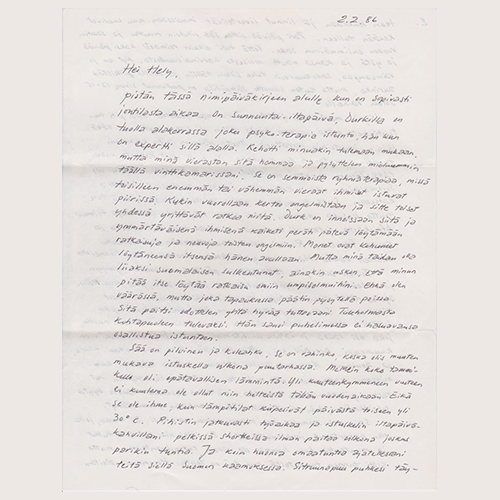 2.2.86
Hei Hely,
pistän tässä nimipäiväkirjeen alulle kun on sopivasti
joutilasta aikaa. On sunnuntai-iltapäivä, Durkilla on
tuolla alakerrassa joku psyko-terapia istunto, hän kun
on expertti sillä alalla. Kehotti minuakin tulemaan mukaan,
mutta minä vierastan sitä hommaa ja pysyttelen mieluummin
täällä vinttikamarissani. Se on semmoista ryhmäterapiaa, missä
toisilleen enemmän tai vähemmän vieraat ihmiset istuvat
piirissä. Kukin vuorollaan kertoo ongelmistaan ja sitte toiset
yhdessä yrittävät ratkoa niitä. Durk on innoissaan siitä ja
ymmärtäväisenä ihmisenä kaikesta perän pätevä löytämään
ratkaisuja ja neuvoja toisten ongelmiin. Monet ovat kehuneet
löytäneensä itsensä hänen avullaan. Mutta minä taidan olla
liiaksi suomalaisen sulkeutunut, ainakin uskon, että minun
pitää itse löytää ratkaisu omiin umpisolmuihini. Ehkä olen
väärässä, mutta joka tapauksessa päätin pysytellä poissa.
Sitä paitsi odottelen yhtä hyvää tuttavaani
kohtapuoleen tulevaksi. Hän sanoi puhelimessa ei haluavansa
osallistua istuntoon.
Sää on pilvinen ja kuleahko, se on vahinko, koska olis muuten
mukava istuskella ulkona puutarhassa. Melkein koko tammi-
kuu oli epätavallisen lämmintä. Yli kuuteenkymmeneen vuoteen
ei kuulema ole ollut niin helteistä tähän vuodenaikaan. Eikä
se ole ihme, kun lämpötilat kipusivat päivästä toiseen yli
30° C. Pihistin jatkuvasti työaikaa ja istuskelin iltapäivä-
kahvillani pelkissä shortseissa ilman paitaa ulkona joskus
parikin tuntia. Ja koin huonoa omaatuntoa ajatellessani
teitä siellä Suomen kaamoksessa. Sitruunapuu puhkesi täy-